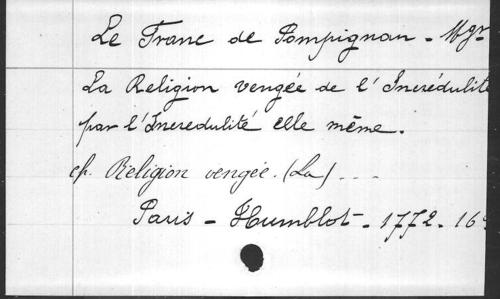 Le Franc de Pompignan - Mgr
La Religion vengée de l'Incrédulité
par l'Incredulité elle même.
cf. Religion vengée. (La) ...
Paris - Humblot - 1772 - 16